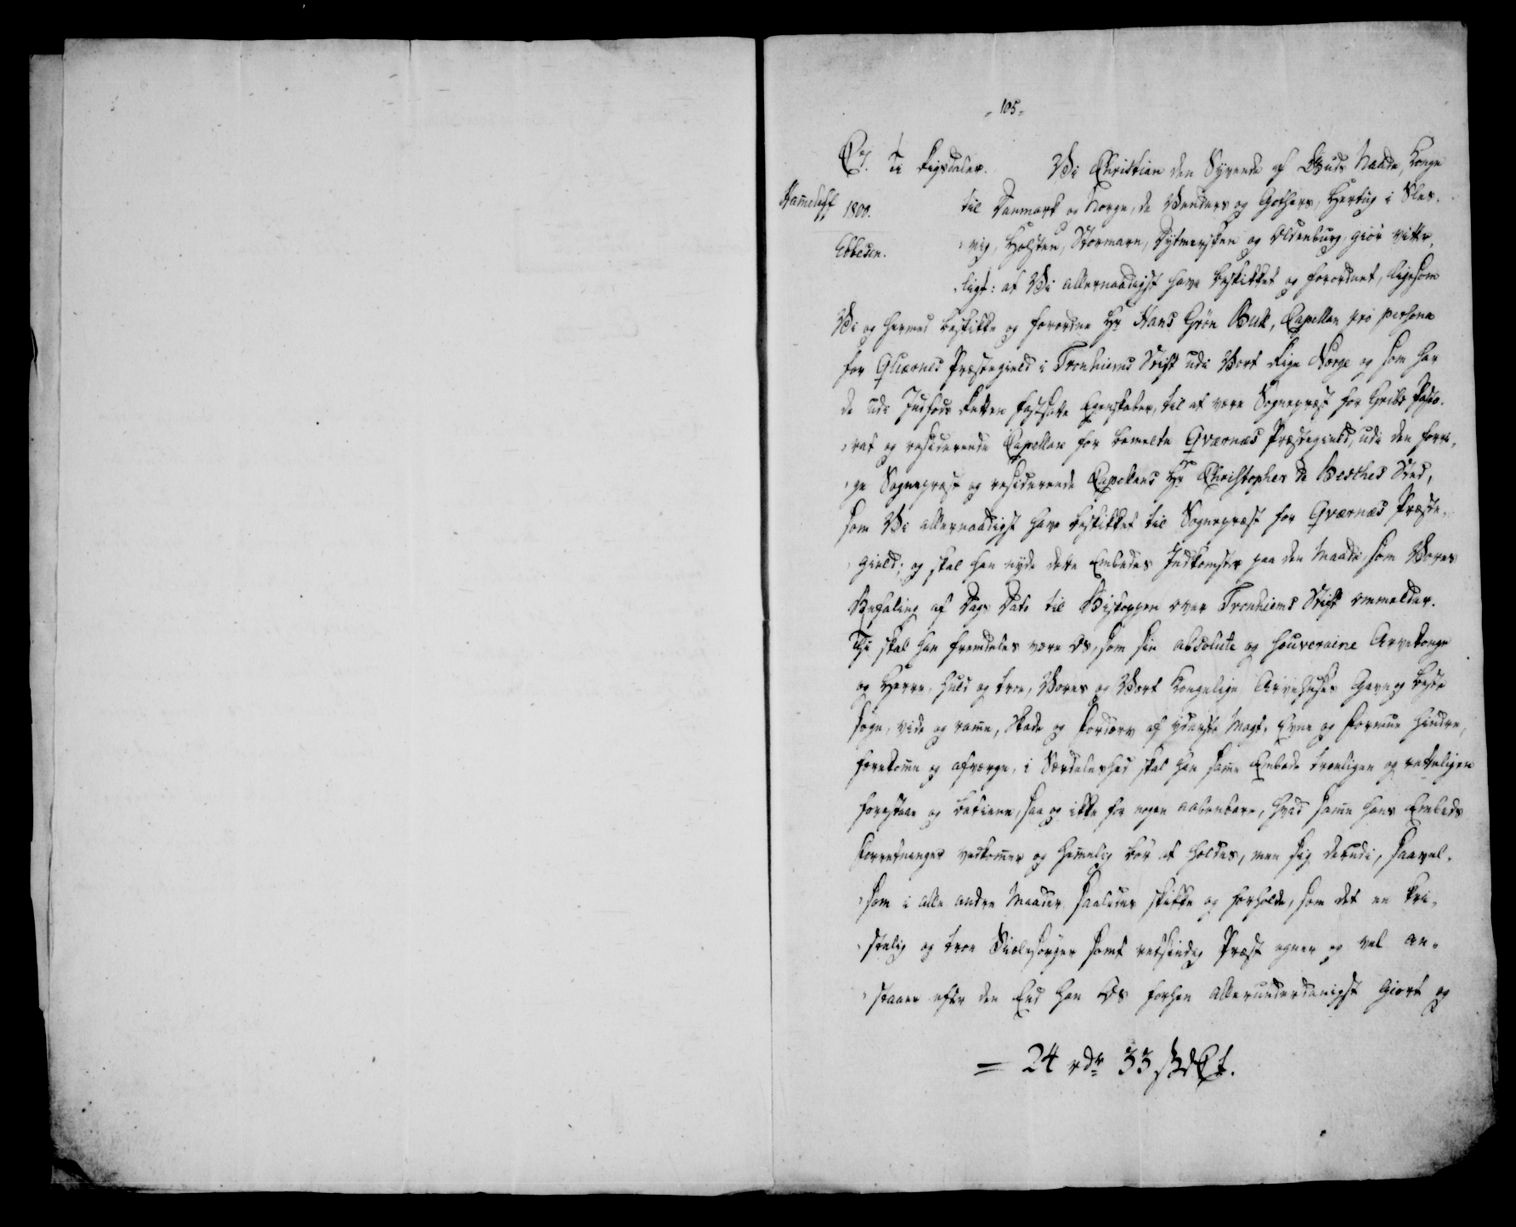 - 105 -
C.T. Ti Rigsdaler. Wi Christian den Syvende af Guds Naade, Konge
Hameleff 1800. til Danmark og Norge, de Wenders og Gothers, Hertug i Sles-
Ebbesen. vig, Holsten, Stormarn, Dytmersken og Oldenburg, giør vitter-
ligt: at Wi allernaadigst have beskikket og forordnet, ligesom
Wi og hermed beskikke og forordne Hr Hans Grøn Buk, Capellan pro persona
for Quærnes Præstegield i Tronhiems Stift udi Vort Rige Norge og som har
de udi Indføds Retten fastsatte Egenskaber, til at være Sognepræst for Gribs Pasto-
rat og residerende Capellan for bemelte Qværnæs Præstegield, udi den forri-
ge Sognepræst og residerende Capellans Hr Christopher de Besches Sted,
som Wi allernaadigst have beskikket til Sognepræst for Qværnæs Præste-
gield; og skal han nyde dette Embedes Indkomster paa den Maade, som Vores
Befaling af Dags Dato til Biskoppen over Tronhiems Stift ommelder.
Thi skal han fremdeles være Os, som sin absolute og souveraine Arvekonge
og Herre, huld og troe, Vores og Vort Kongelige Arvehuses Gavn og beste
søge, vide og ramme, Skade og Fordærv af yderste Magt, Evne og Formue hindre,
forekomme og afværge, i Særdeleshed skal han samme Embede troeligen og retteligen
forestaae og betiene, saa og ikke for nogen aabenbare, hvad samme hans Embeds
Forretninger vedkommer og hemelig bør at holdes, men sig derudi, saavel-
som i alle andre Maader saaledes skikke og forholde, som det en Kri-
stelig og troe Siælesørger samt retsindig Præst egner og vel an-
staaer efter den Eed han Os forhen allerunderdanigst giort og
= 24 rdr 33 ß d C.t.